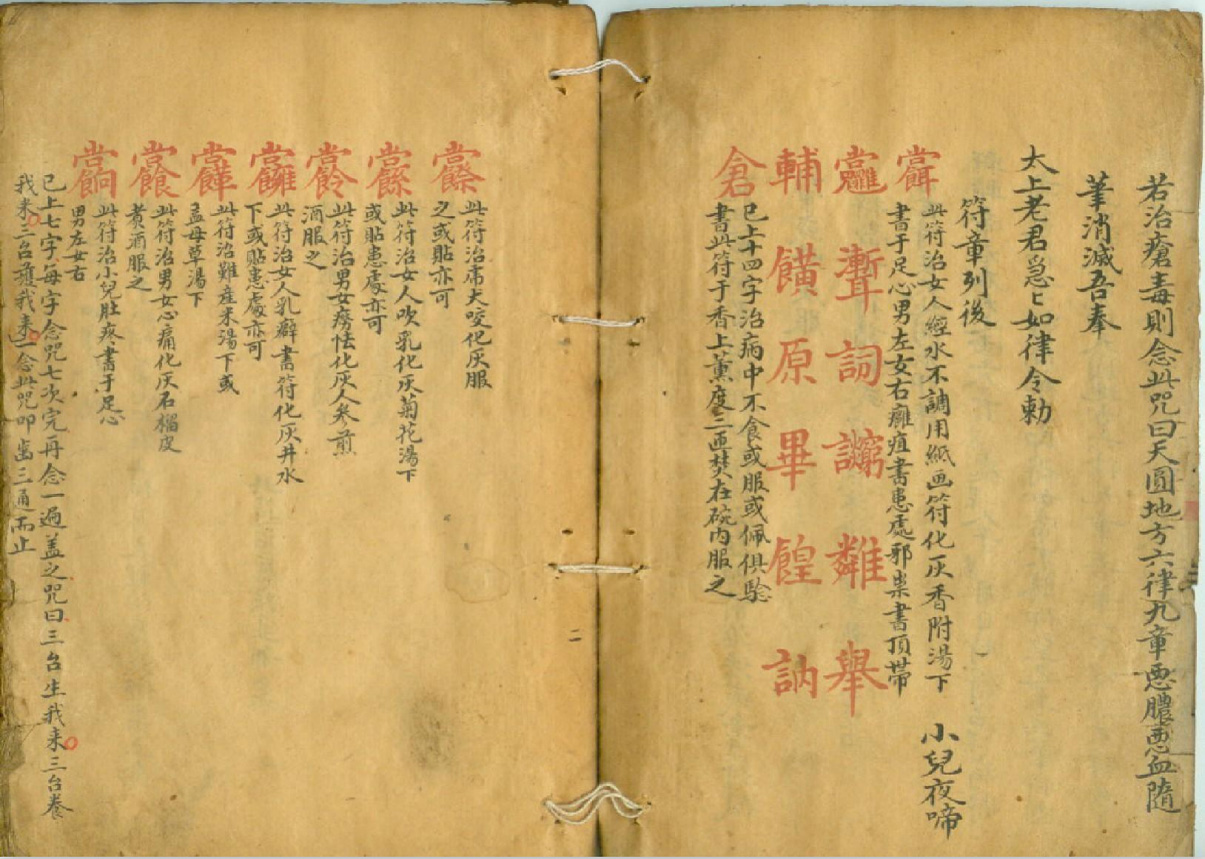 若治瘡毒則念此咒曰天圓地方六律九章惡膿惡血隨
筆消滅吾奉
太上老君急ヒ如律令勅
符章列後
此符治女人經水不調用紙画符化灰香附湯下 小兒夜啼
書于足心男左女右癰疽書患處邪祟書頂帶
詞 舉
輔 原畢 訥
倉
已上十四字治病中不食或服或佩俱驗
書此符于香上薰度三匝焚在碗内服之
二
此符治席犬咬化灰服
之或貼亦可
此符治女人吹乳化灰菊花湯下
或貼患處亦可
此符治男女癆怯化灰人參煎
酒服之
此符治女人乳癖書符化灰井水
下或貼患處亦可
此符治難産米湯下或
益母草湯下
此符治男女心痛化灰石榴皮
煮酒服之
此符治小兒肚疼書于足心
男左女右
已上七字每字念咒七次完再念一遍蓋之咒曰三台生我來三台養
我來三台護我來念此咒叩齒三通而止